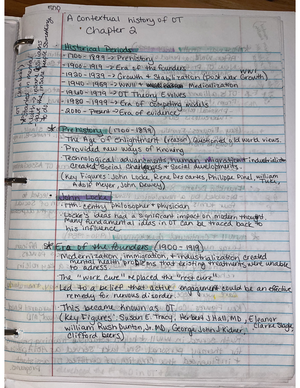 A contextual history of OT
• Chapter 2
Historical Periods
- 1700 - 1899 → Prehistory
- 1900 - 1919 → Era of the founders
- 1920 - 1939 → Growth + Stabilization (post war Growth)
- 1940 - 1959 → WWII + Medicalization
- 1960 - 1979 → OT Theory Evolves
- 1980 - 1999 → Era of competing models
- 2000 - Present → Era of evidence
* Prehistory (1700 - 1899)
- The Age of Enlightment (reason) questioned old world views.
- Provided new ways of thinking
- Technological advantments, human migration + industrialism
created social challenges + social developments
(Key Figures: John Locke, Rene Descartes, Philippe Pinel, William Tuke,
Adolf Meyer, John Dewey)
John Locke
- 17th century philosopher + physician
- Locke's ideas had a significant impact on modern thought
Many fundamental ideas in OT can be traced back to
his influence
* Era of the founders (1900 - 1919)
- Modernization, immigration, + industrialization created
mental health problems that existing treatments were unable
to adress.
- The "work cure" replaced the "rest cure"
- Led to a belief that active engagement could be an effective
remedy for nervous disorder
- This became known as OT
(Key Figures: Susan E. Tracy, Herbert J Hall, MD, Eleanor Clarke Slagle,
William Rush Dunton, Jr. MD, George
Clifford Beers)